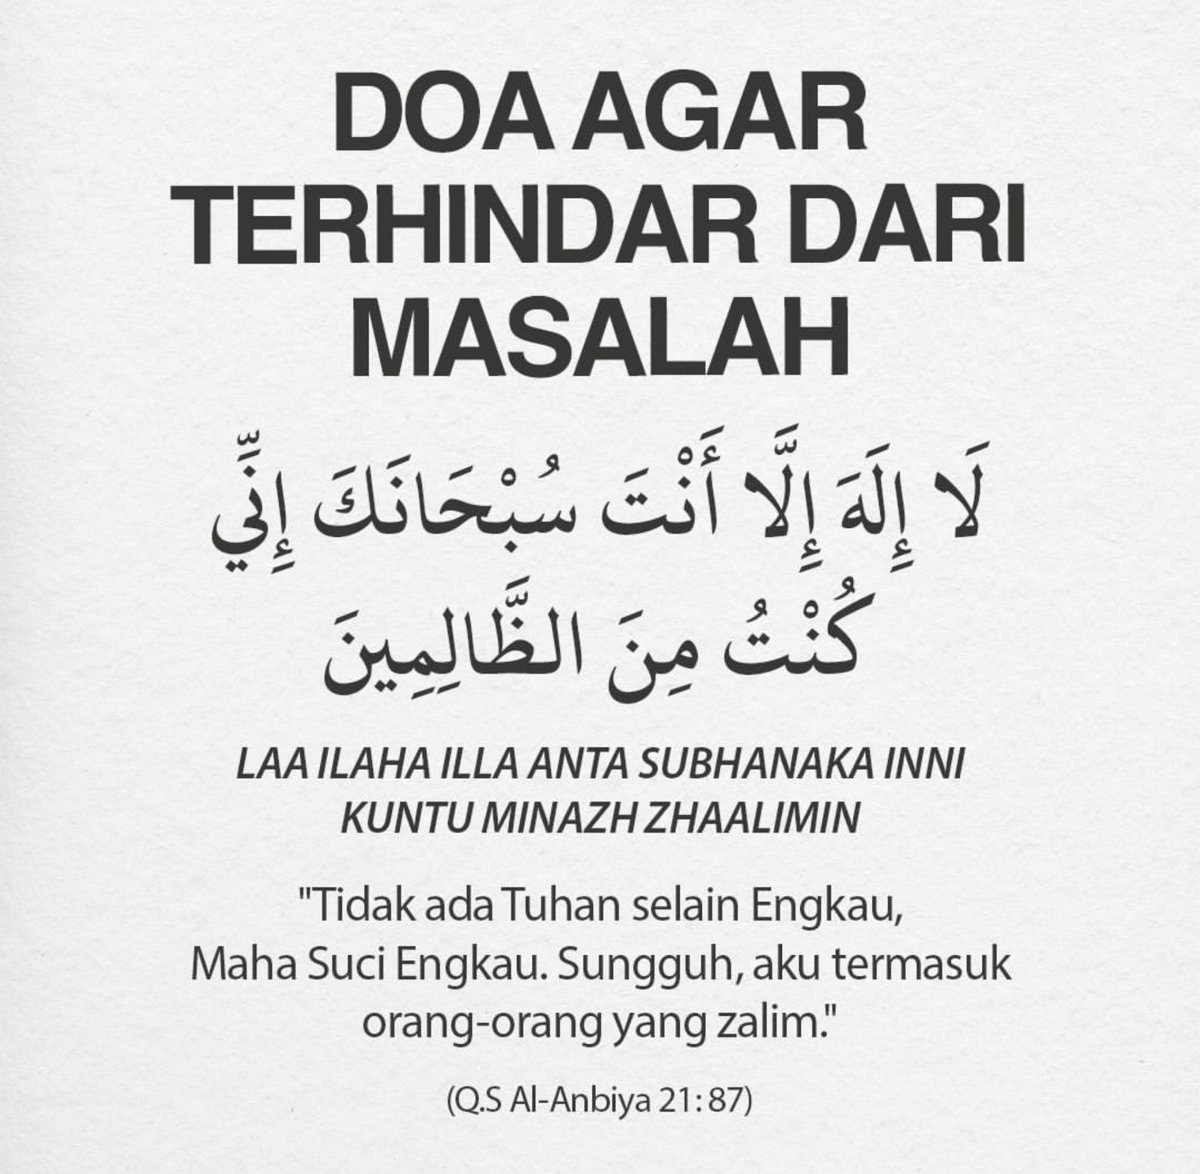 DOA AGAR
TERHINDAR DARI
MASALAH
لَا إِلَهَ إِلَّا أَنْتَ سُبْحَانَكَ إِنِّي
كُنْتُ مِنَ الظَّالِمِينَ
LAA ILAHA ILLA ANTA SUBHANAKA INNI
KUNTU MINAZH ZHAALIMIN
"Tidak ada Tuhan selain Engkau,
Maha Suci Engkau. Sungguh, aku termasuk
orang-orang yang zalim."
(Q.S Al-Anbiya 21: 87)